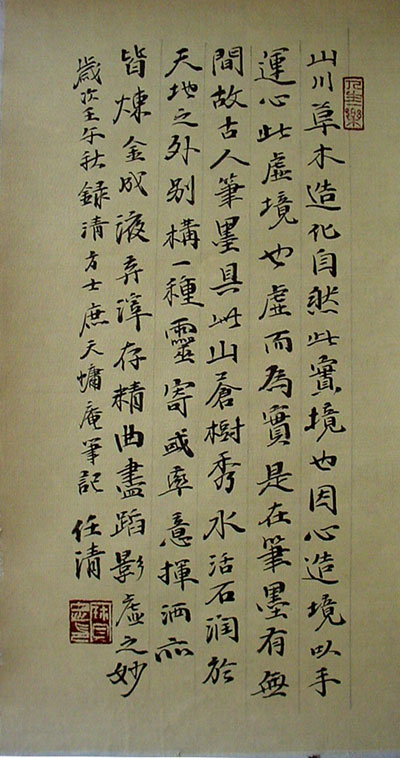 山川草木造化自然此實境也因心造境以手
運心此虛境也虛而為實是在筆墨有無
間故古人筆墨具此山蒼樹秀水活石潤於
天地之外別構一種靈寄或率意揮洒亦
皆煉金成液弃滓存精曲盡蹈影虛之妙
歲次壬午秋録清方士庶天慵庵筆記 任清